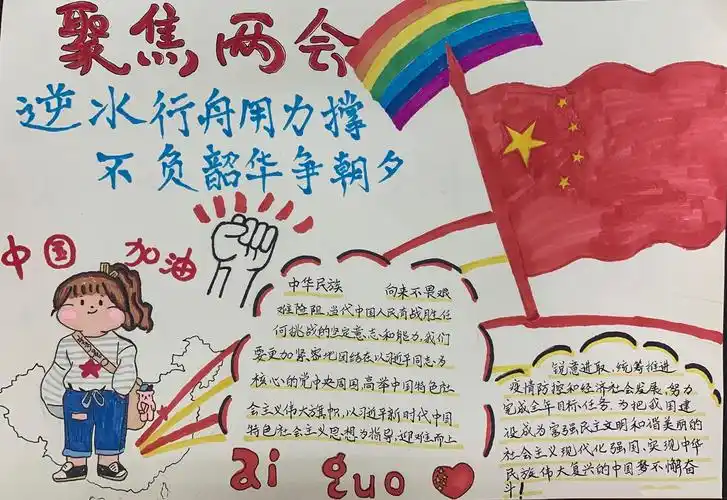 聚焦两会
逆水行舟用力撑
不负韶华争朝夕
中国 加油
中华民族 向来不畏艰
难险阻,当代中国人民有战胜任
何挑战的坚定意志和能力,我们
要更加紧密地团结在以习近平同志为
核心的党中央周围,高举中国特色社
会主义伟大旗帜,以习近平新时代中国
特色社会主义思想为指导,迎难而上
锐意进取,统筹推进
疫情防控和经济社会发展,努力
完成全年目标任务,为把我国建
设成为富强民主文明和谐美丽的
社会主义现代化强国,实现中华
民族伟大复兴的中国梦不懈奋
斗!
ai guo